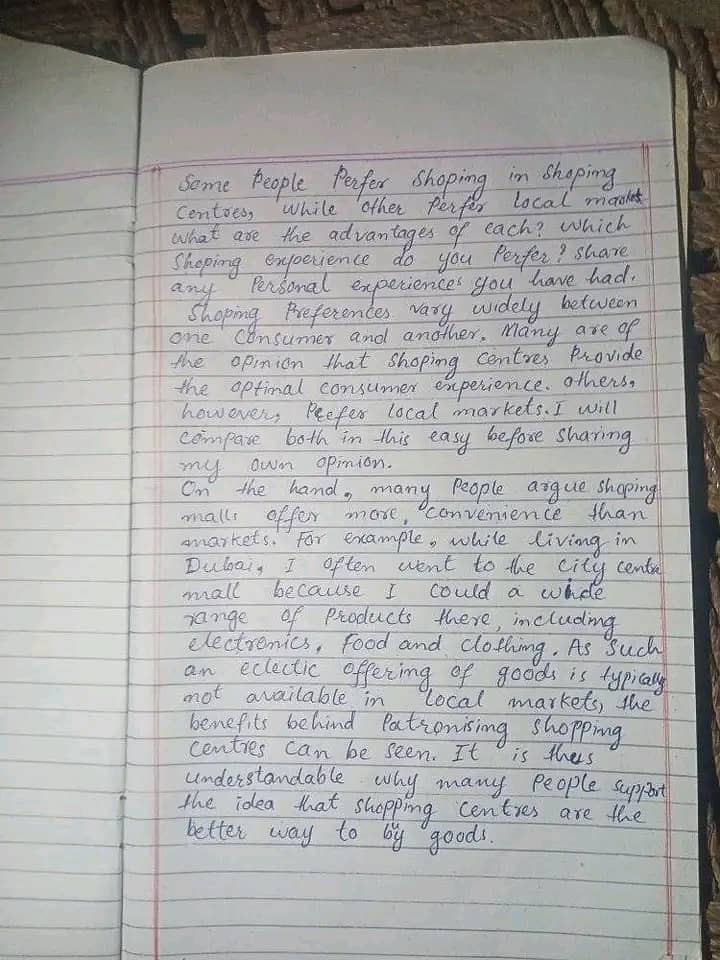 Some People Perfer Shoping in Shoping
Centres, while other Perfer local market
what are the advantages of each? which
Shoping experience do you Perfer? share
any Personal experiences you have had.
Shoping Preferences vary widely between
one Consumer and another. Many are of
the opinion that Shoping Centres Provide
the optimal consumer experience. others,
however, Peefer local markets. I will
compare both in this easy before sharing
my own opinion.
On the hand, many People argue shoping
malls offer more, convenience than
markets. For example, while living in
Dubai, I often went to the City cente
mall because I could a wide
range of Products there, including
electronics, food and clothing. As Such
an eclectic offering of goods is typically
not available in local markets, the
benefits behind Patronising shopping
centres can be seen. It is thus
understandable why many People support
the idea that shopping centres are the
better way to by goods.